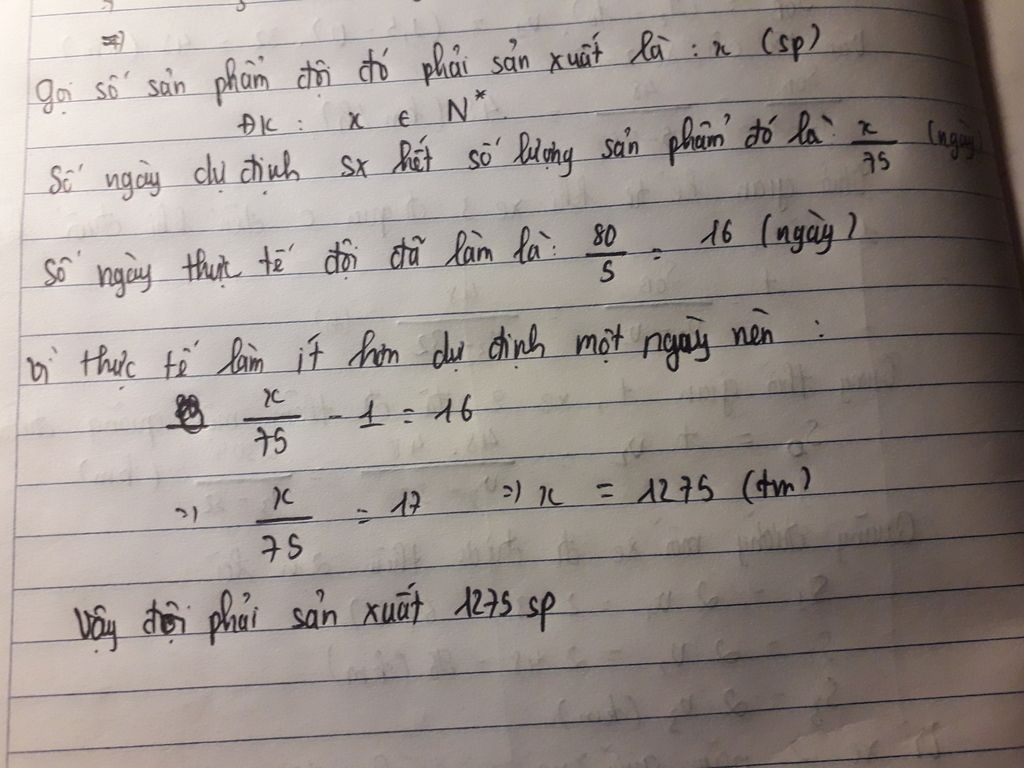 =)
Gọi số sản phẩm đội đó phải sản xuất là : x (sp)
ĐK : x ∈ N*
Số ngày dự định sx hết số lượng sản phẩm đó là: x/75 (ngày)
Số ngày thực tế đội đã làm là: 80/5 = 16 (ngày)
Vì thực tế làm ít hơn dự định một ngày nên :
x/75 - 1 = 16
=) x/75 = 17 =) x = 1275 (tm)
Vậy đội phải sản xuất 1275 sp